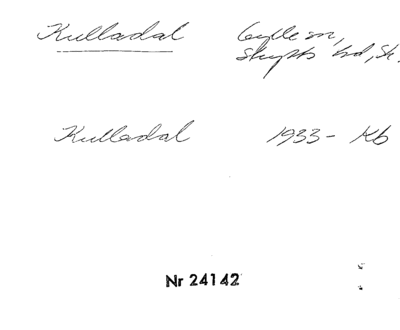 Kulladal Gylle sn,
Skytts hd, Sk.
Kulladal 1933- Kb
Nr 24142